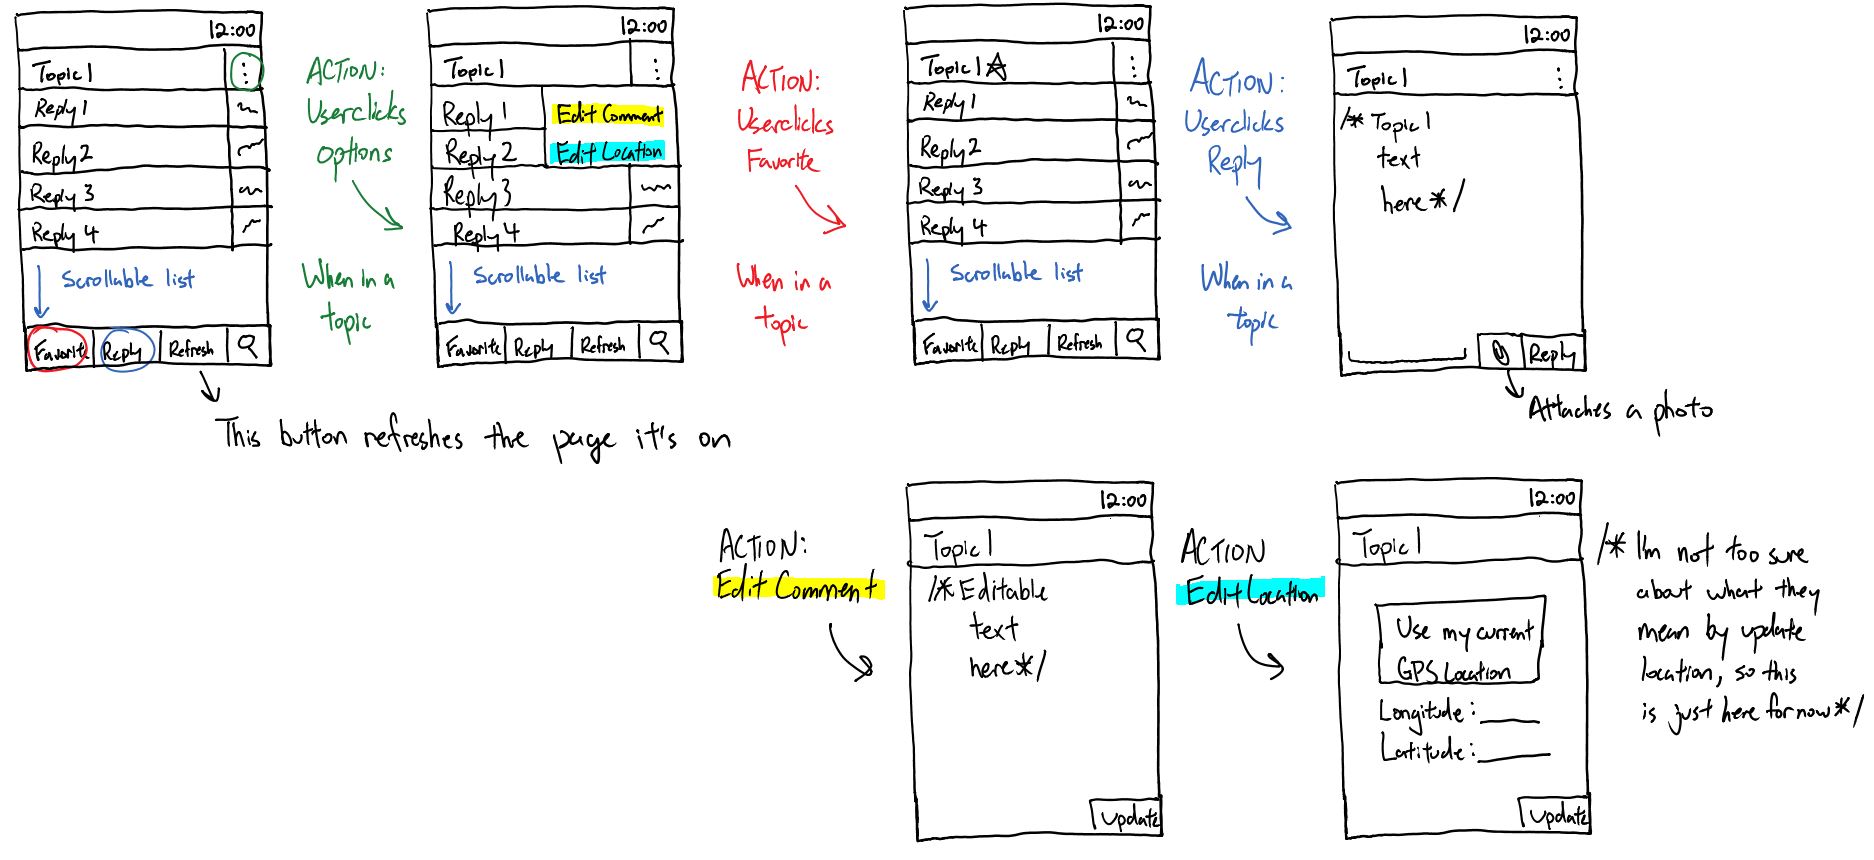 12:00
Topic 1
Reply 1
Reply 2
Reply 3
Reply 4
Scrollable list
Favorite Reply Refresh
This button refreshes the page it's on
ACTION:
User clicks
options
When in a
topic
12:00
Topic 1
Reply 1
Edit Comment
Reply 2
Edit Location
Reply 3
Reply 4
Scrollable list
Favorite Reply Refresh
ACTION:
User clicks
Favorite
When in a
topic
12:00
Topic 1
Reply 1
Reply 2
Reply 3
Reply 4
Scrollable list
Favorite Reply Refresh
ACTION:
User clicks
Reply
When in a
topic
12:00
Topic 1
/* Topic 1
text
here */
Reply
Attaches a photo
ACTION:
Edit Comment
12:00
Topic 1
/* Editable
text
here */
Update
ACTION
Edit Location
12:00
Topic 1
Use my current
GPS Location
Longitude:
Latitude:
Update
/* I'm not too sure
about what they
mean by update
location, so this
is just here for now */